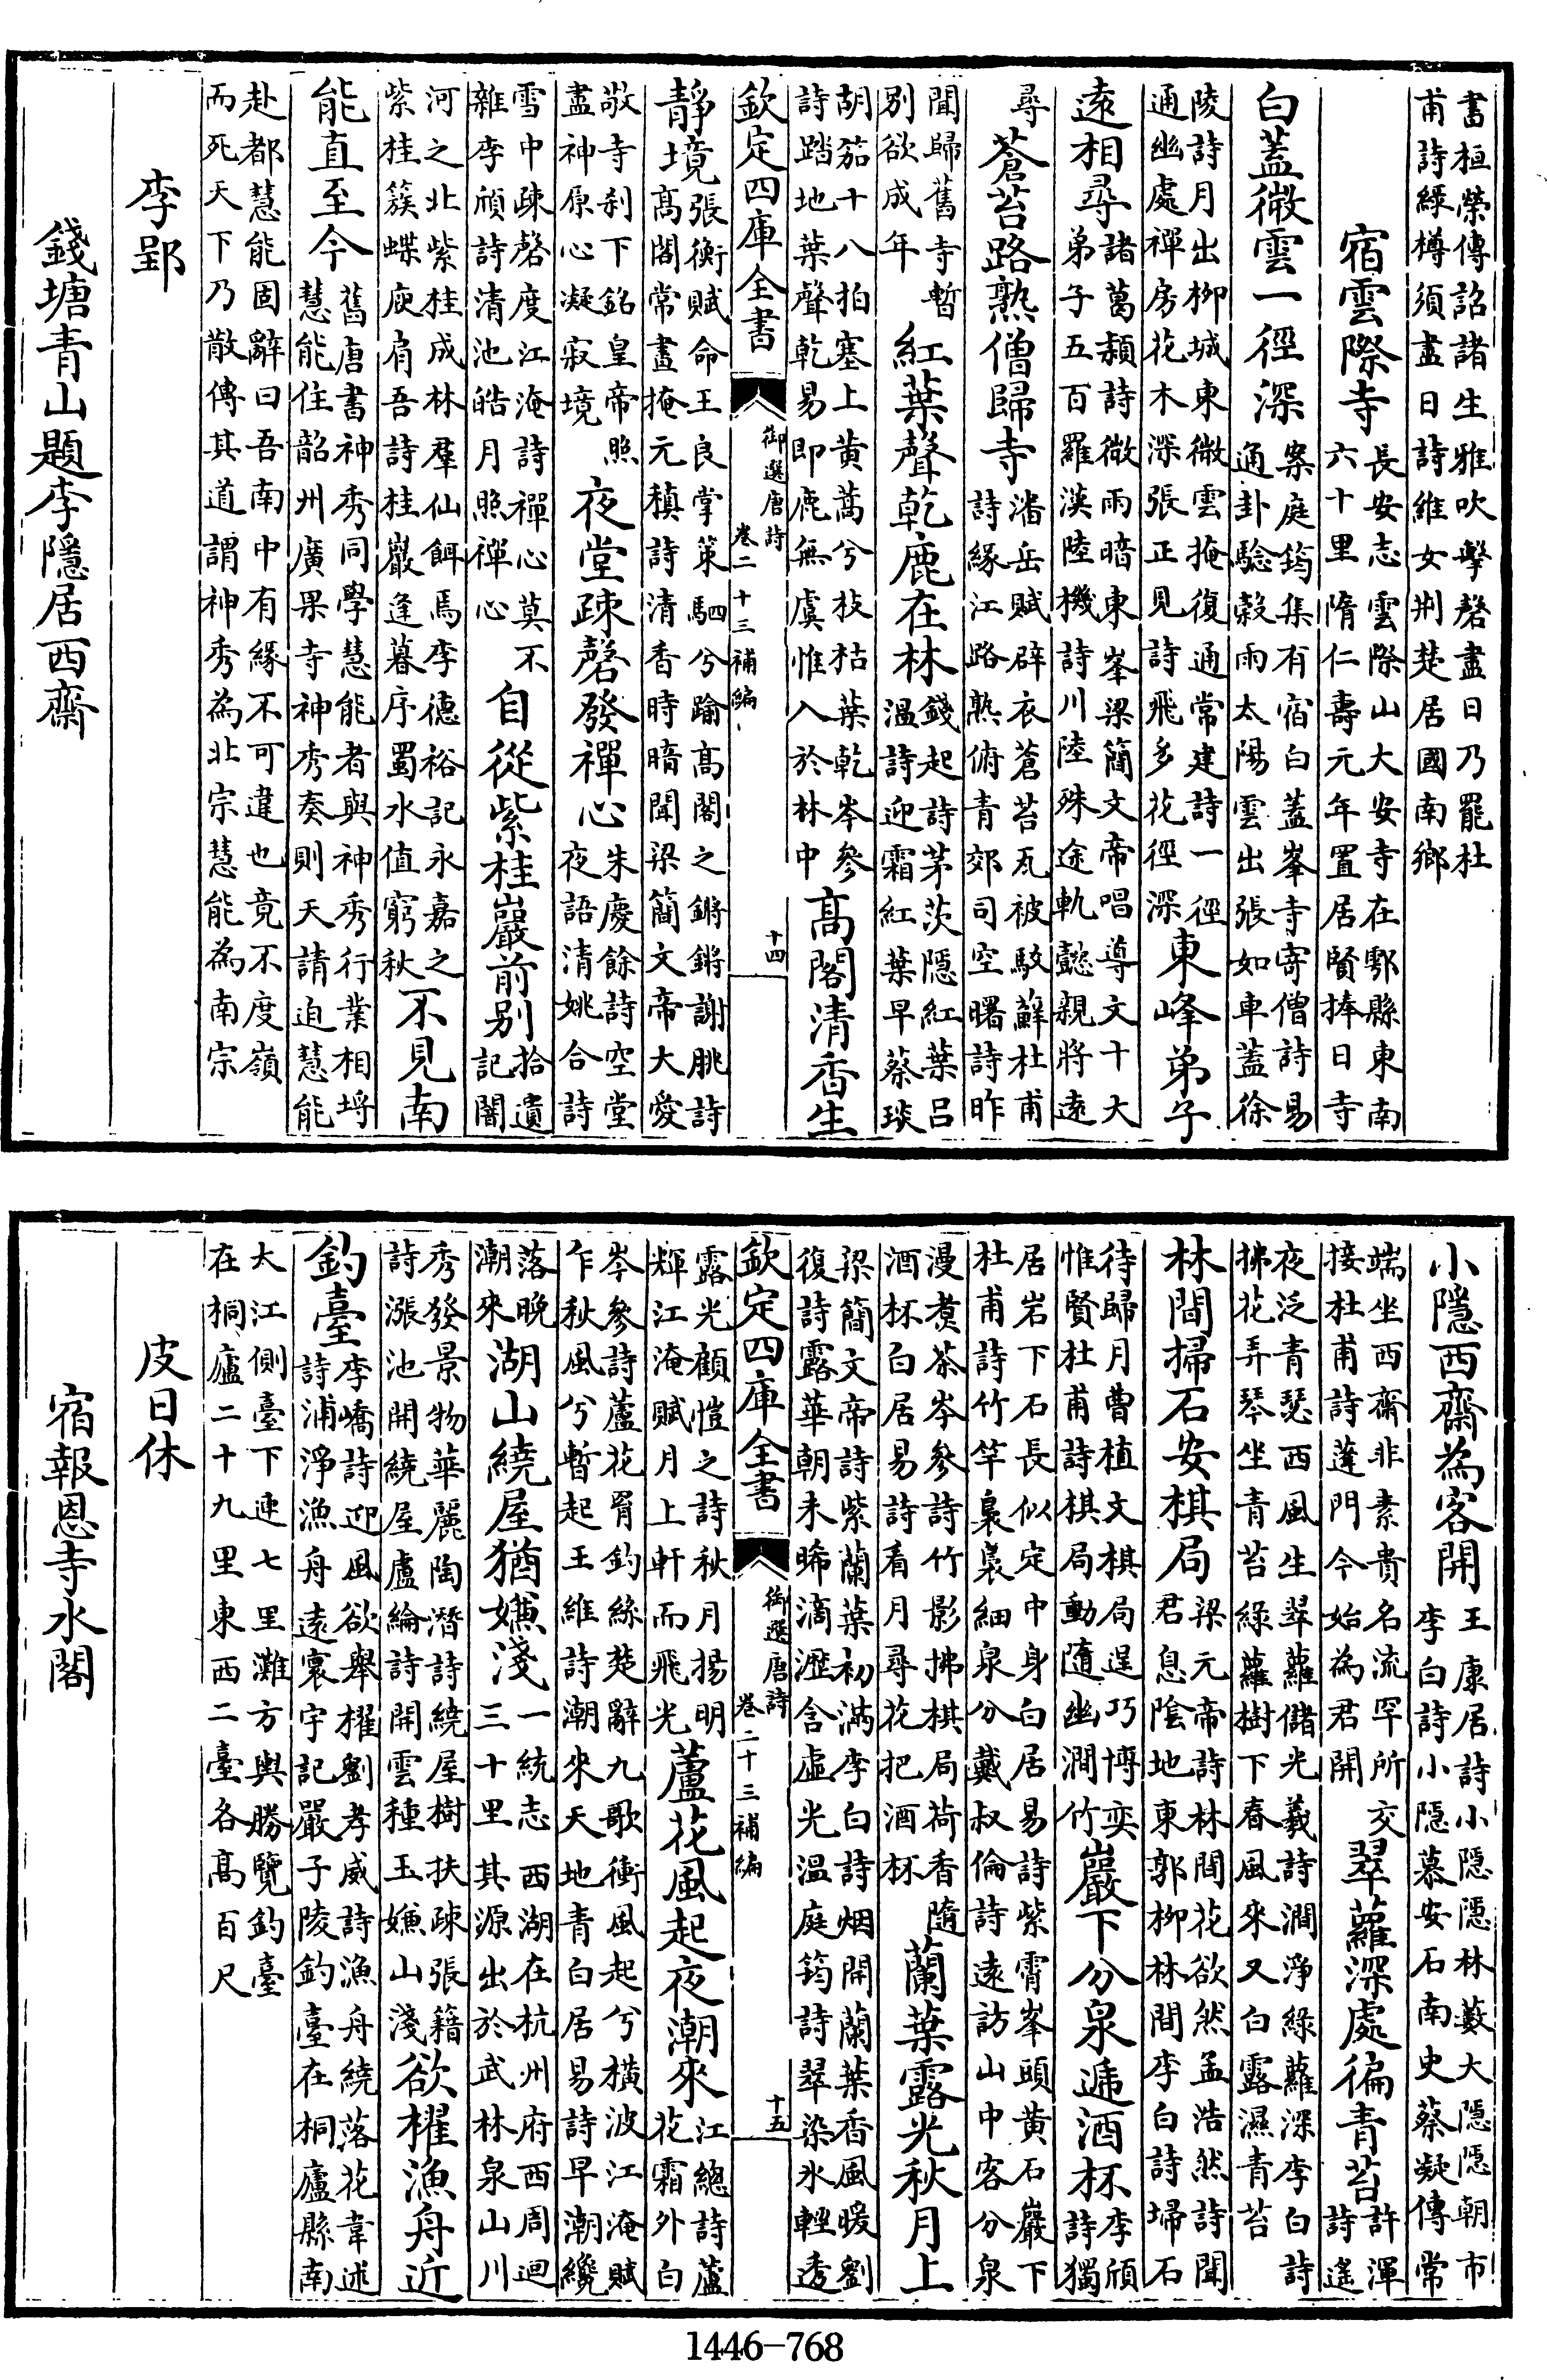 書桓榮傳詔諸生雅吹擊磬盡日乃罷杜
甫詩緑樽須盡日詩維女荆楚居國南鄉
宿雲際寺長安志雲際山大安寺在鄠縣東南
六十里隋仁壽元年置居賢捧日寺
白蓋微雲一徑深案庭筠集有宿白蓋峯寺寄僧詩易
通卦驗穀雨太陽雲出張如車蓋徐
陵詩月出柳城東微雲掩復通常建詩一徑
通幽處禪房花木深張正見詩飛多花徑深東峰弟子
遠相尋諸葛潁詩微雨暗東峯梁簡文帝唱導文十大
弟子五百羅漢陸機詩川陸殊途軌懿親將遠
尋蒼苔路熟僧歸寺潘岳賦辟衣蒼苔瓦被駮蘚杜甫
詩緣江路熟俯青郊司空曙詩昨
聞歸舊寺暫
別欲成年紅葉聲乾鹿在林錢起詩茅茨隱紅葉吕
温詩迎霜紅葉早蔡琰
胡笳十八拍塞上黄蒿兮枝枯葉乾岑參
詩踏地葉聲乾易即鹿無虞惟入於林中高閣清香生
欽定四庫全書 御選唐詩 卷二十三補編 十四
靜境張衡賦命王良掌策駟兮踰高閣之鏘鏘謝朓詩
高閣常晝掩元稹詩清香時暗聞梁簡文帝大愛
敬寺刹下銘皇帝照
盡神原心凝寂境夜堂疎磬發禪心朱慶餘詩空堂
夜語清姚合詩
雪中疎磬度江淹詩禪心莫不
雜李頎詩清池皓月照禪心自從紫桂巖前别拾遺
記闇
河之北紫桂成林羣仙餌焉李德裕記永嘉之
紫桂簇蝶庾肩吾詩桂巖逢暮序蜀水值窮秋不見南
能直至今舊唐書神秀同學慧能者與神秀行業相埒
慧能住韶州廣果寺神秀奏則天請迫慧能
赴都慧能固辭曰吾南中有緣不可違也竟不度嶺
而死天下乃散傳其道謂神秀為北宗慧能為南宗
李郢
錢塘青山題李隱居西齋
小隱西齋為客開王康居詩小隱隱林藪大隱隱朝市
李白詩小隱慕安石南史蔡凝傳常
端坐西齋非素貴名流罕所交
接杜甫詩蓬門今始為君開翠蘿深處徧青苔許渾
詩遙
夜泛青瑟西風生翠蘿儲光羲詩澗淨緑蘿深李白詩
拂花弄琴坐青苔緑蘿樹下春風來又白露濕青苔
林間掃石安棋局梁元帝詩林間花欲然孟浩然詩聞
君息陰地東郭柳林間李白詩埽石
待歸月曹植文棋局逞巧博奕
惟賢杜甫詩棋局動隨幽澗竹巖下分泉遞酒杯李頎
詩獨
居岩下石長似定中身白居易詩紫霄峯頭黄石巖下
杜甫詩竹竿裊裊細泉分戴叔倫詩遠訪山中客分泉
漫煑茶岑參詩竹影拂棋局荷香隨
酒杯白居易詩看月尋花把酒杯蘭葉露光秋月上
梁簡文帝詩紫蘭葉初滿李白詩烟開蘭葉香風暖劉
復詩露華朝未晞滴瀝含虛光温庭筠詩翠染氷輕透
欽定四庫全書 御選唐詩 卷二十三補編 十五
露光顧愷之詩秋月揚明
輝江淹賦月上軒而飛光蘆花風起夜潮來江總詩蘆
花霜外白
岑參詩蘆花罥釣絲楚辭九歌衝風起兮橫波江淹賦
乍秋風兮暫起王維詩潮來天地青白居易詩早潮纔
落晚
潮來湖山繞屋猶嫌淺一統志西湖在杭州府西周迴
三十里其源出於武林泉山川
秀發景物華麗陶潛詩繞屋樹扶疎張籍
詩漲池開繞屋盧綸詩開雲種玉嫌山淺欲櫂漁舟近
釣臺李嶠詩迎風欲舉櫂劉孝威詩漁舟繞落花韋述
詩浦淨漁舟遠寰宇記嚴子陵釣臺在桐廬縣南
大江側臺下連七里灘方輿勝覽釣臺
在桐廬二十九里東西二臺各高百尺
皮日休
宿報恩寺水閣
1446-768